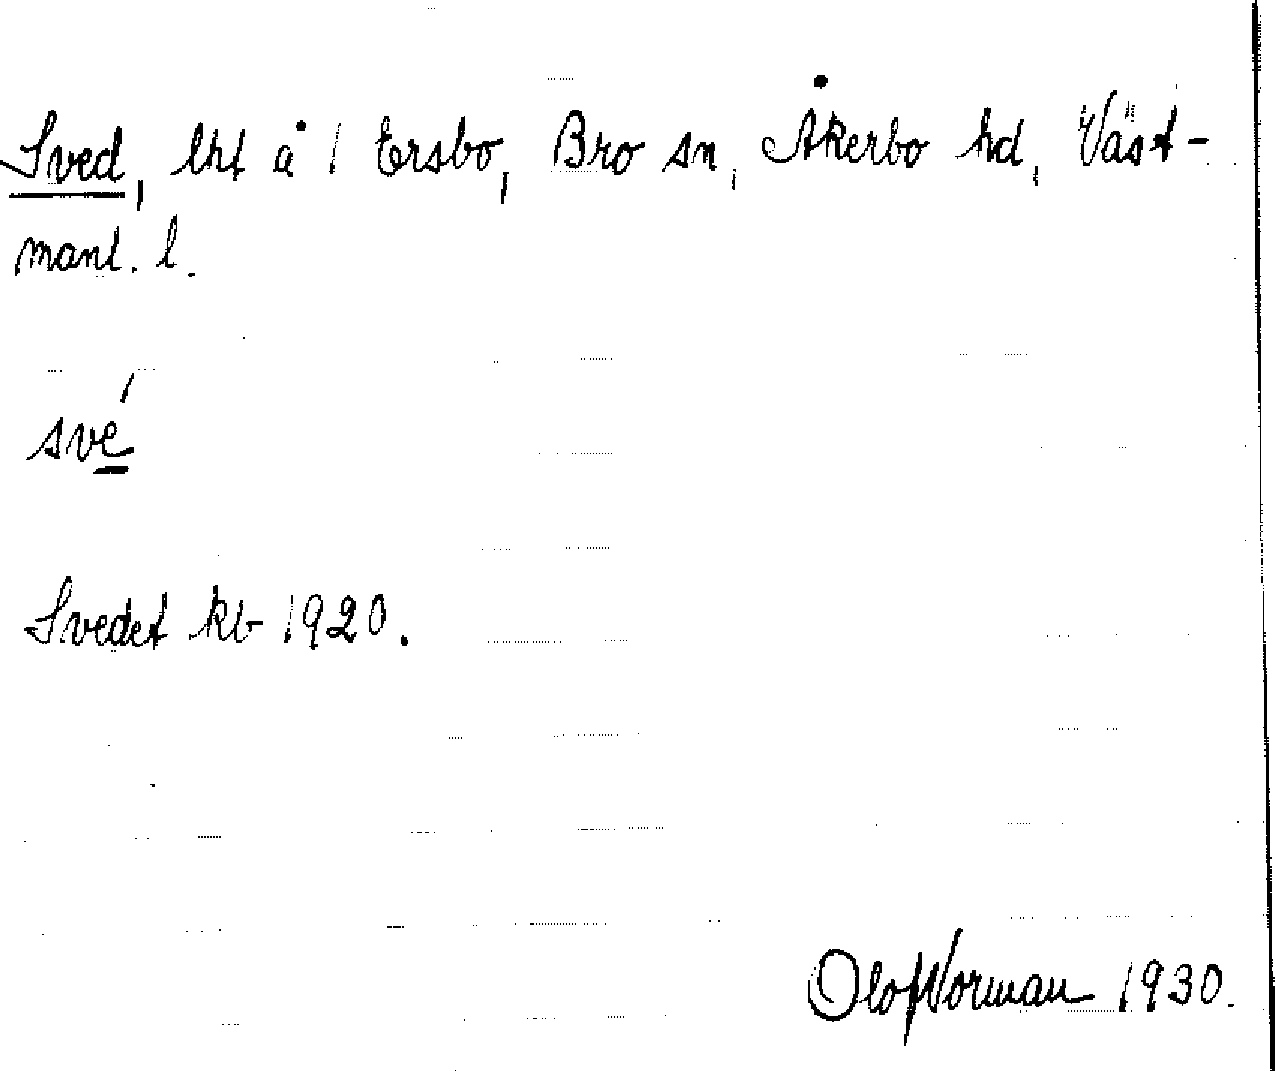 Sved, lht å 1 Ersbo, Bro sn, Åkerbo hd, Väst-
manl. l.
své
Svedet kb 1920.
Olof Norman 1930.